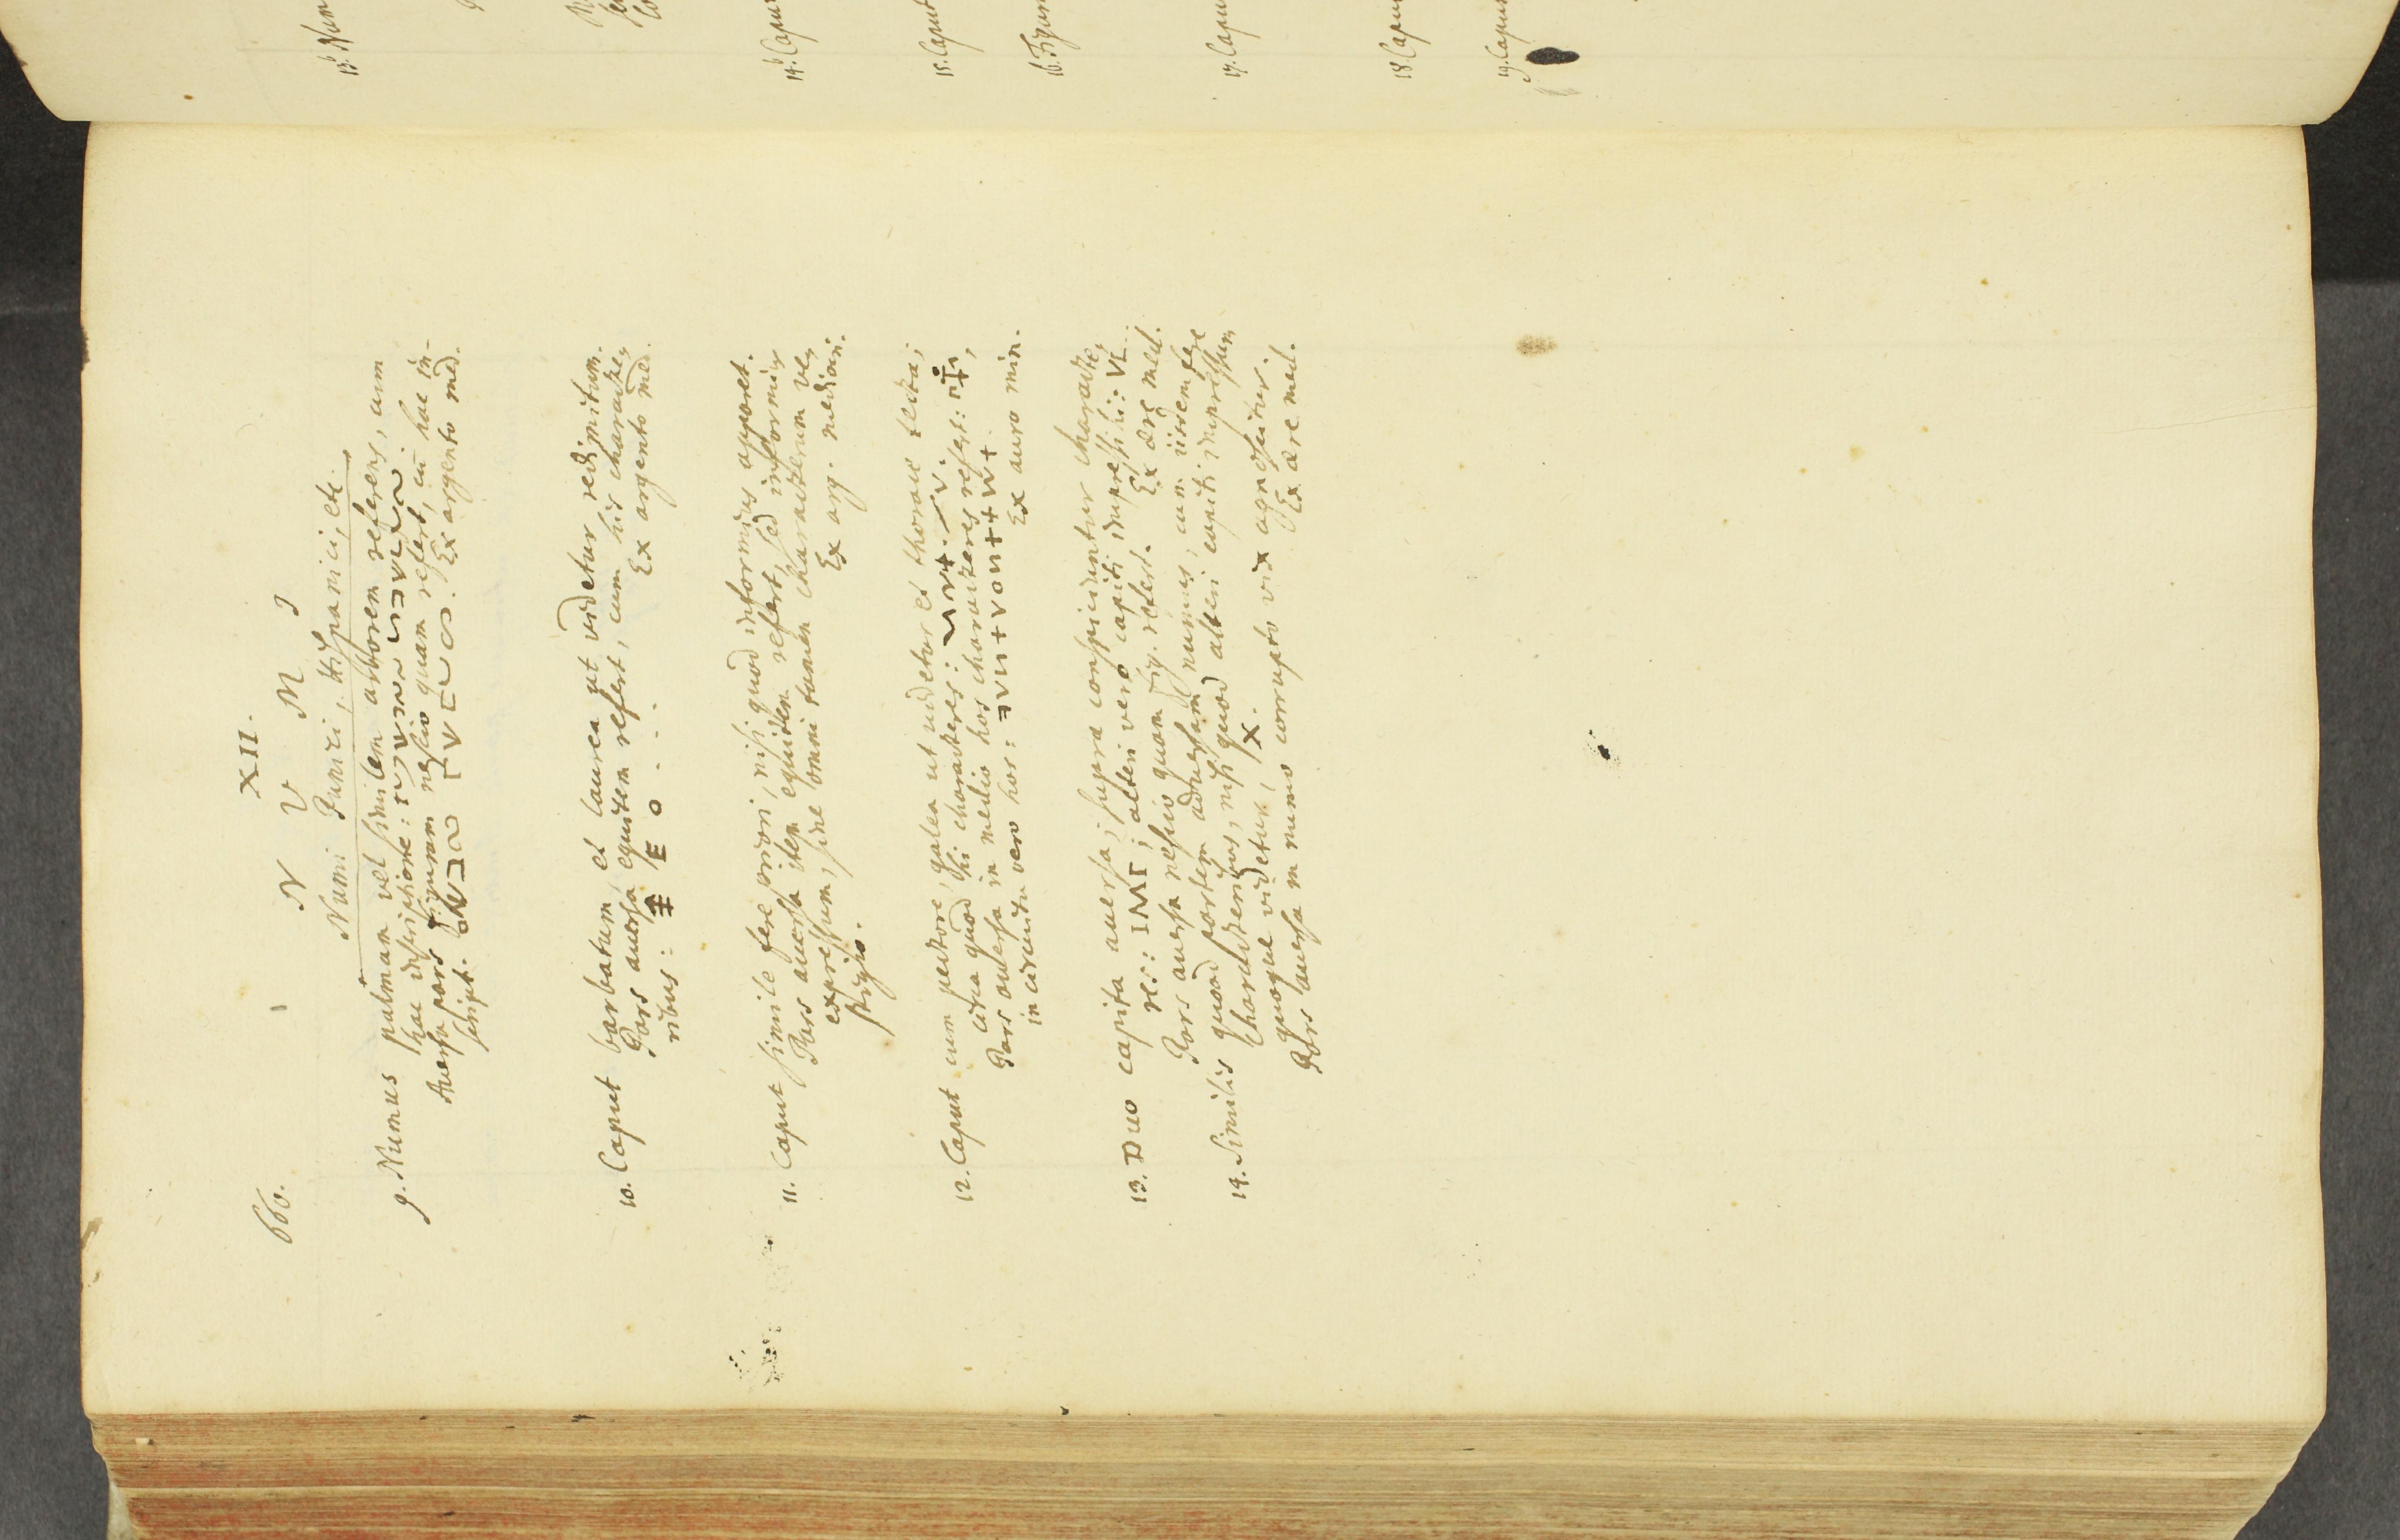 660.
XII.
N V M I
Numi Punici, Hispanici, etc.
9. Numus palmam vel similem arborem referens, cum
hac inscriptione:
Aversa pars figuram nescio quam refert, cū hac in-
script. Ex argento med.
10. Caput barbatum, et laurea ut videtur redimitum.
Pars aversa equitem refert, cum his characte-
ribus: Ex argento med.
11. Caput simile fere priori, nisi quod informius apparet.
Pars aversa item equitem refert, sed informius
expressum, sine omni tamen characterum ves-
tigio. Ex arg. median.
12. Caput cum pectore, galea ut videtur et thorace tecta;
circa quod hi characteres:
Pars aversa in medio hos characteres refert:
in circuitu vero hos:
Ex auro min.
13. Duo capita aversa; supra conspiciuntur characte-
res: IMΓ; alteri vero capiti impressi hi: VL
Pars aversa nescio quam fig. refert. Ex ære med.
14. Similis quoad partem adversam numus, cum iisdem fere
characteribus, nisi quod alteri capiti impressum
quoque videtur, X.
Pars aversa in numo corrupto vix agnoscitur.
Ex ære med.
13. Num
14. Caput
15. Caput
16. Figur
17. Capu
18. Capu
19. Capu